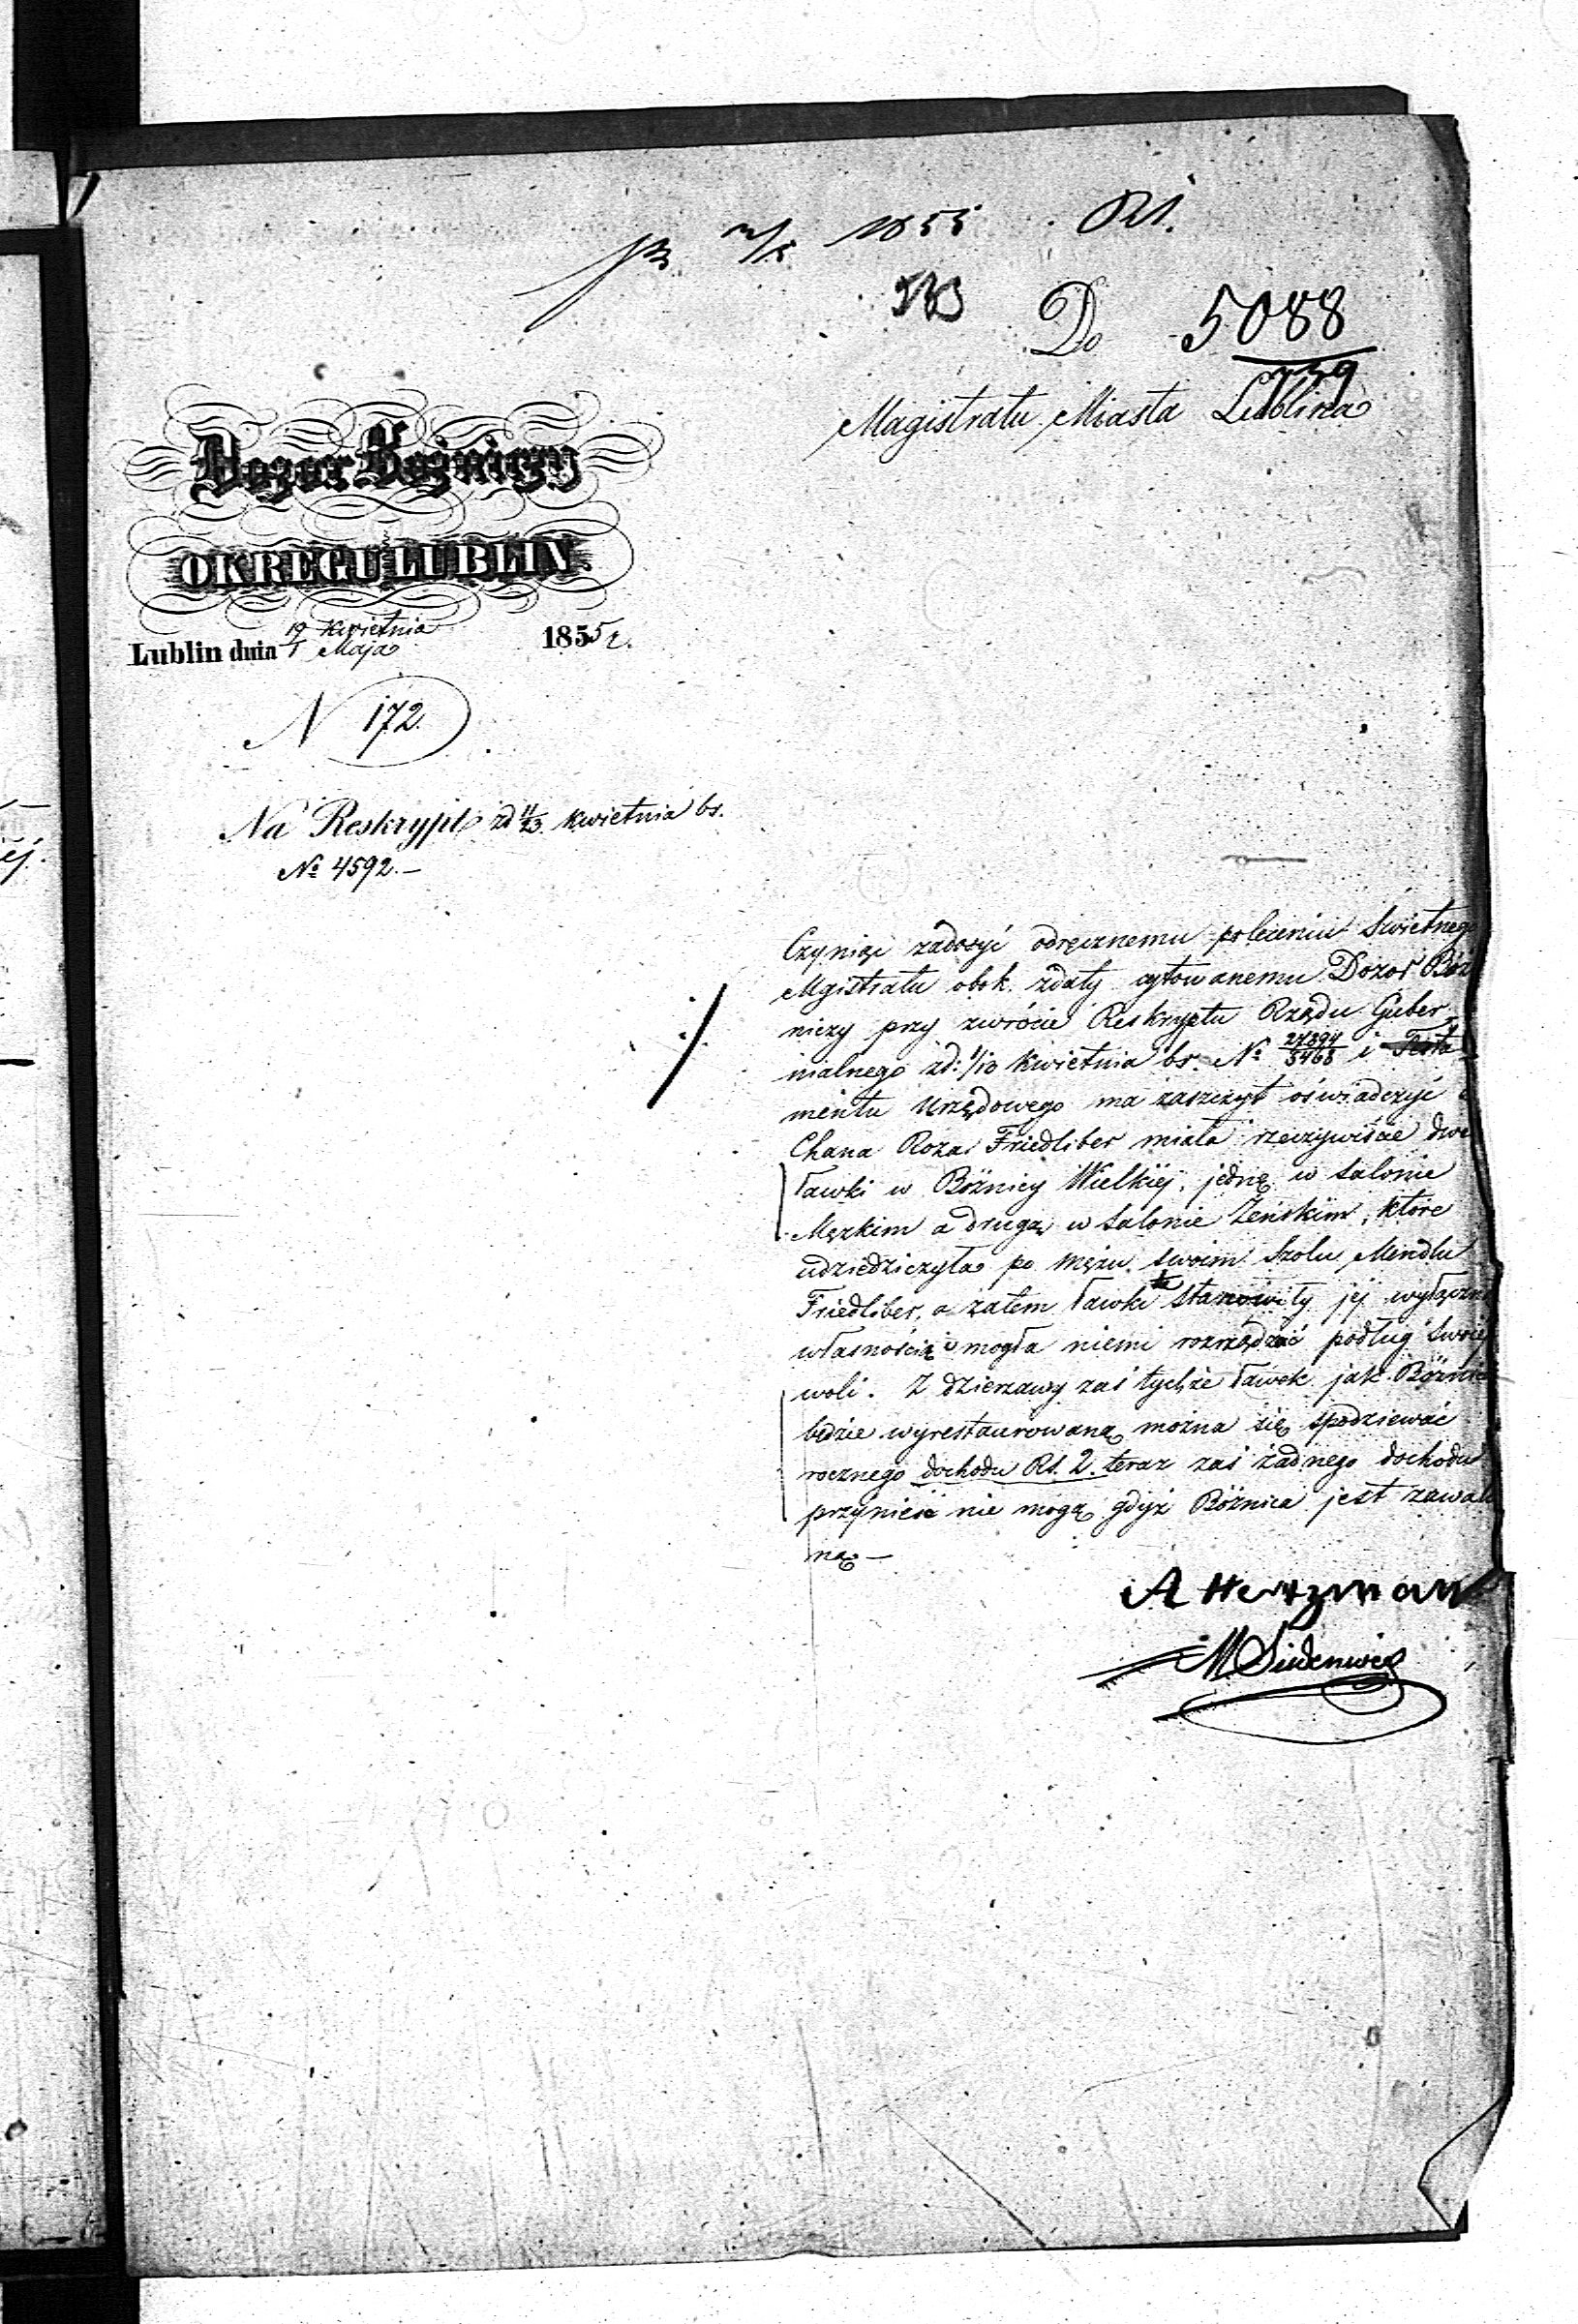 1855
Do 5088
739
Magistratu Miasta Lublina
Dozor Bożniczy
OKRĘGU LUBLIN.
Lublin dnia 19 Kwietnia / 1 Maja 1855 r.
N 172.
Na Reskrypt zd 11/23 Kwietnia br.
№ 4592.—
Czyniąc zadosyć odręcznemu poleceniu Swietnego
Mgistratu obok zdaty cytowanemu Dozór Boż
niczy przy zwrócie Reskryptu Rządu Guber
nialnego zd: 1/13 Kwietnia br. № 27394/5468 i Testa
mentu Urzędowego ma zaszczyt oświadczyć
Chana Roza Friedliber miała rzeczywiście dwie
ławki w Bóżnicy Wielkiéj, jednę w salonie
Męzkim a drugą w salonie Żeńskim, które
udziedziczyła po mężu swoim Szolu Mendlu
Friedliber, a zatem ławki te stanowiły jéj wyłączną
własnością i mogła niemi rozrządzać podług swojéj
woli. Z dzierzawy zaś tychże ławek jak Bóżnica
będzie wyrestaurowaną można się spodziewać
rocznego dochodu Rs. 2. teraz zaś żadnego dochodu
przynieść nie mogą gdyż Bóżnica jest zawalo
ną—
A Hertzman